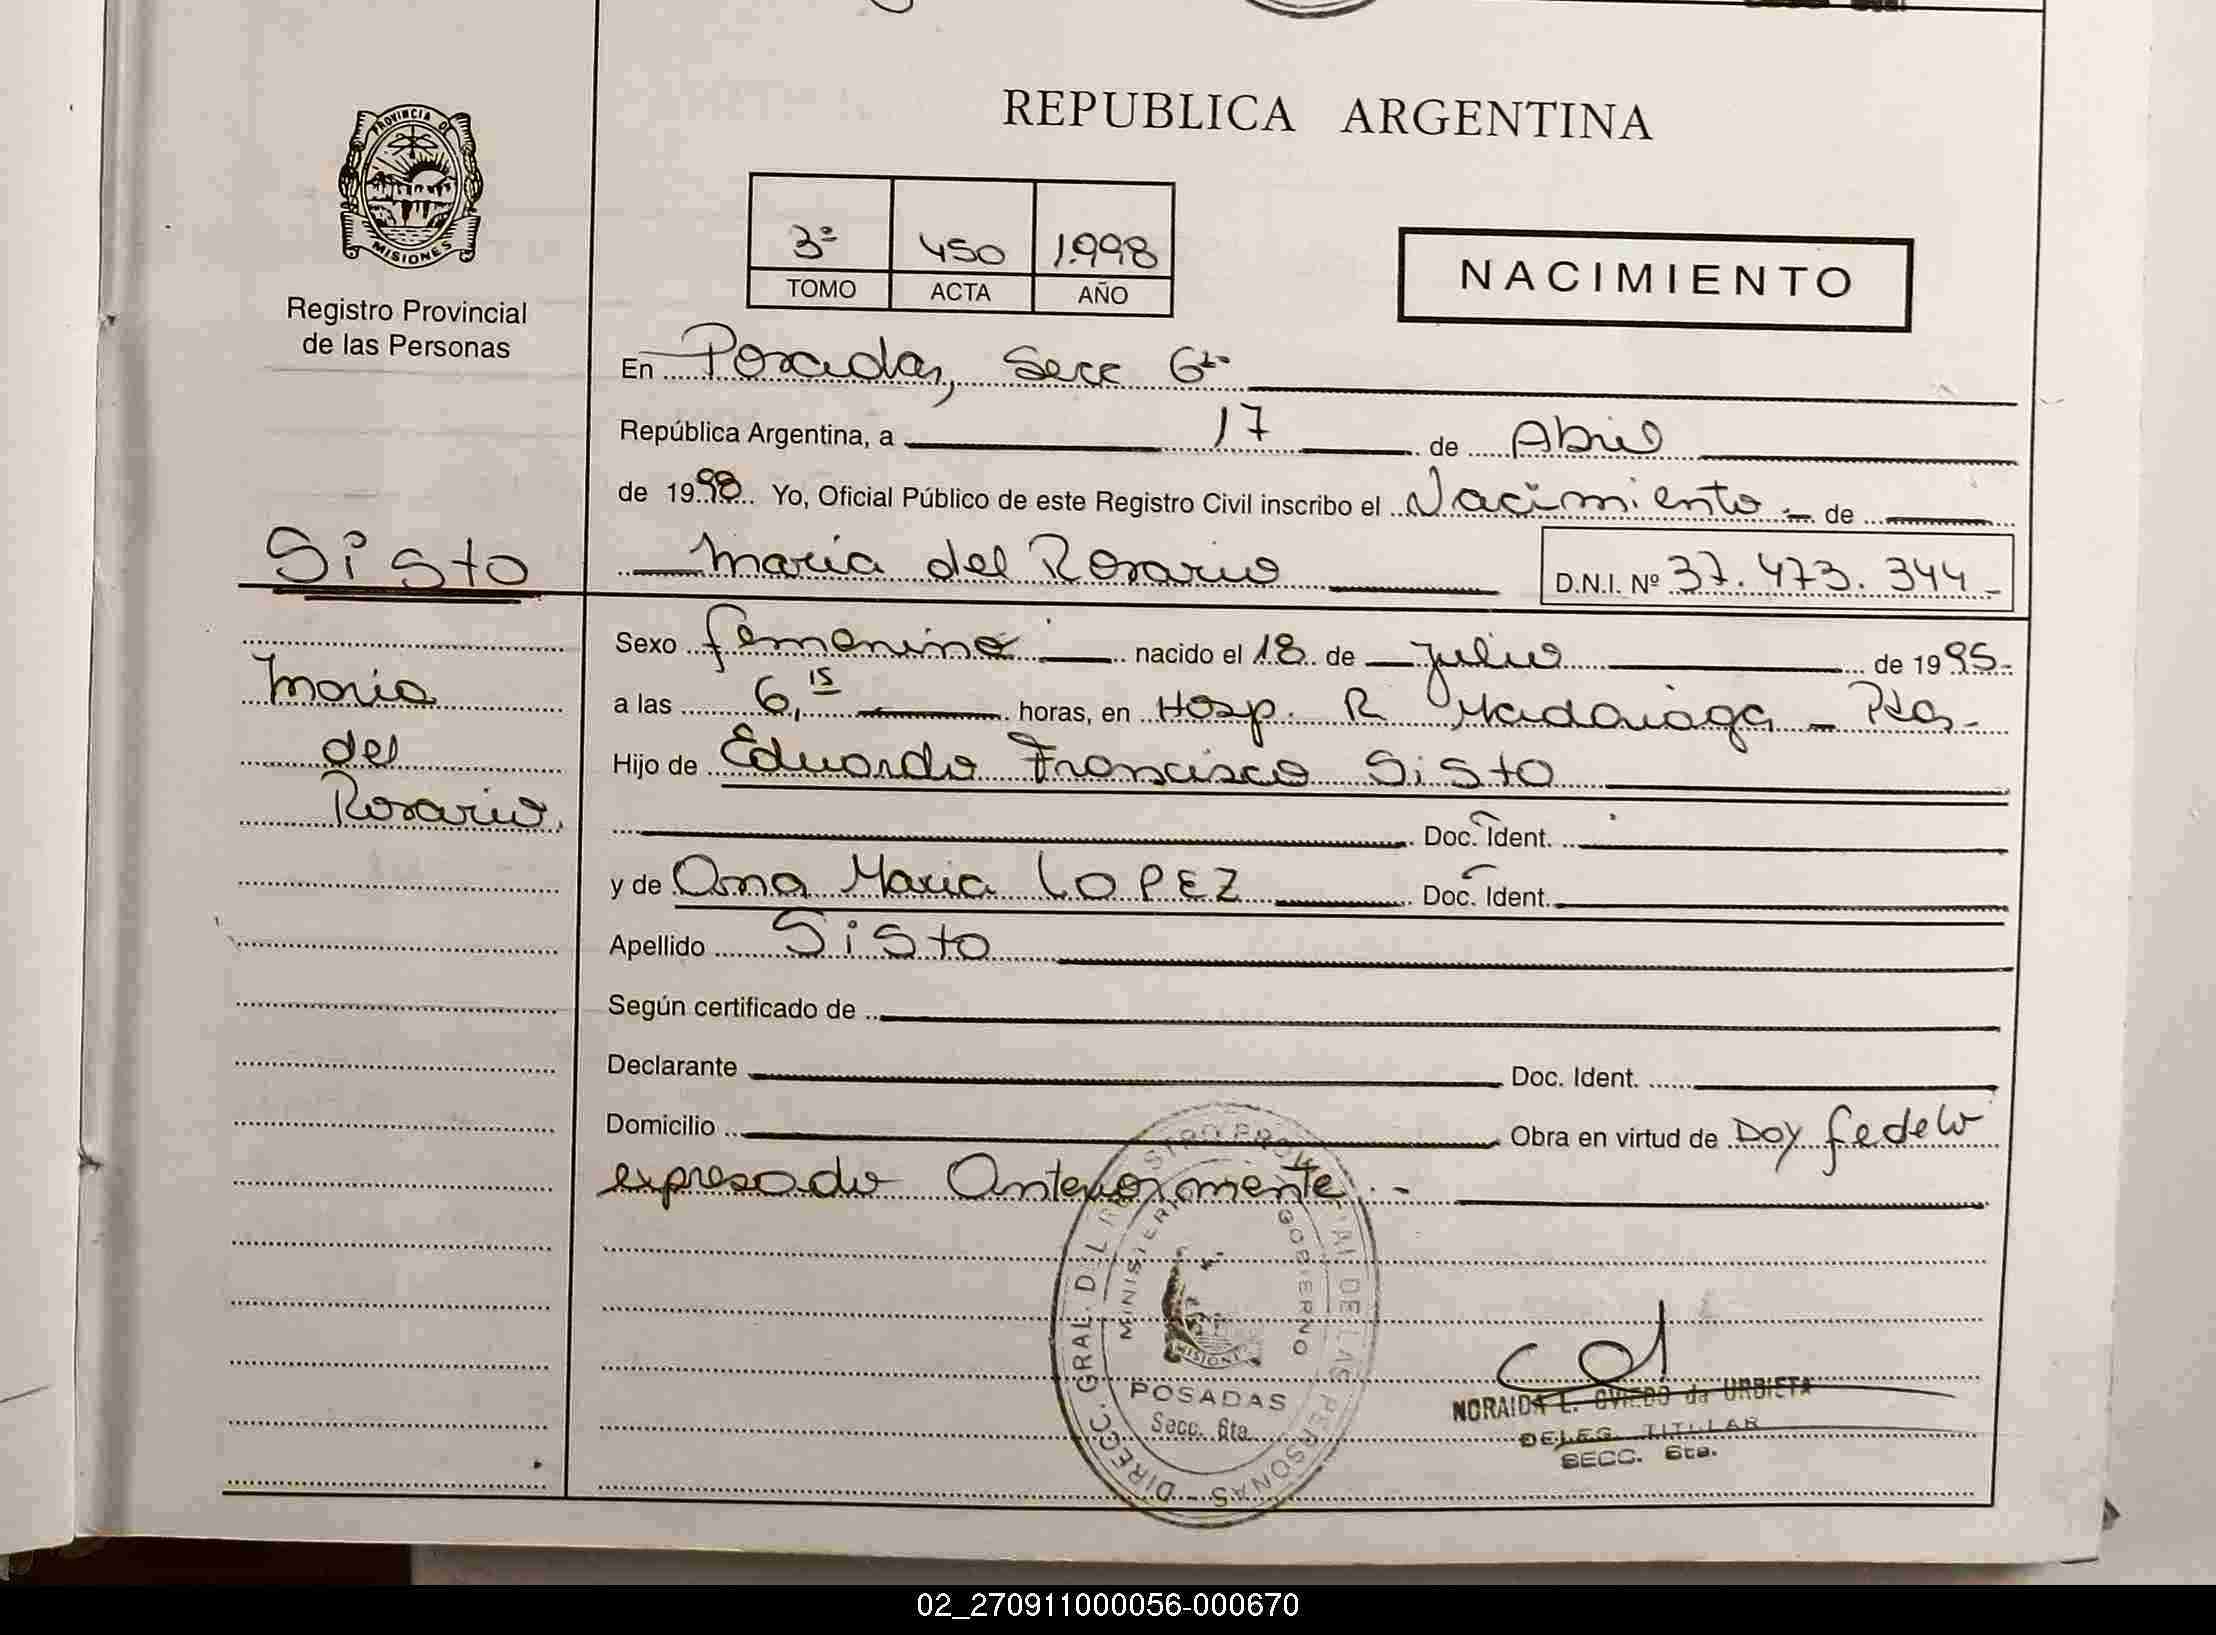 REPUBLICA ARGENTINA
PROVINCIA DE
MISIONES
Registro Provincial
de las Personas
3º 450 1.998
TOMO ACTA AÑO
NACIMIENTO
En Posadas, Secc 6ta
República Argentina, a 17 de Abril
de 1998 Yo, Oficial Público de este Registro Civil inscribo el Nacimiento de
Sisto
Maria del Rosario D.N.I. Nº 37.473.344
Sexo femenino nacido el 18 de Julio de 1995
a las 6,15 horas, en Hosp. R Madariaga - Pdas-
Maria
del
Rosario
Hijo de Eduardo Francisco Sisto
Doc. Ident.
y de Ana Maria LOPEZ Doc. Ident.
Apellido Sisto
Según certificado de
Declarante Doc. Ident.
Domicilio Obra en virtud de Doy fe de lo
expresado Anteriormente.-
DIRECC. GRAL. DEL REGISTRO PROVINCIAL DE LAS PERSONAS
MINISTERIO GOBIERNO
MISIONES
POSADAS
Secc. 6ta.
NORAIDA L. OVIEDO de URBIETA
DELEG. TITULAR
SECC. 6ta.
02_270911000056-000670